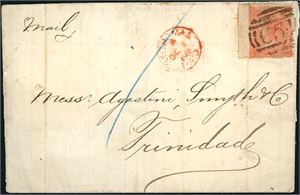 Mail
Mess: Agostini, Smyth & Co
Trinidad